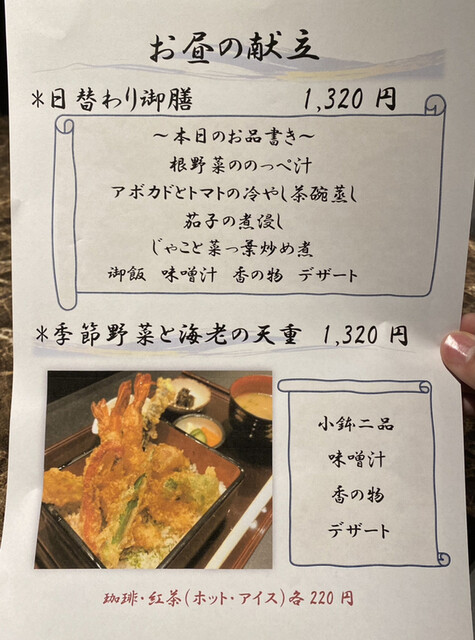 お昼の献立
*日替わり御膳 1,320 円
~本日のお品書き~
根野菜ののっぺ汁
アボカドとトマトの冷やし茶碗蒸し
茄子の煮浸し
じゃこと菜っ葉炒め煮
御飯 味噌汁 香の物 デザート
*季節野菜と海老の天重 1,320 円
小鉢二品
味噌汁
香の物
デザート
珈琲・紅茶(ホット・アイス)各220円